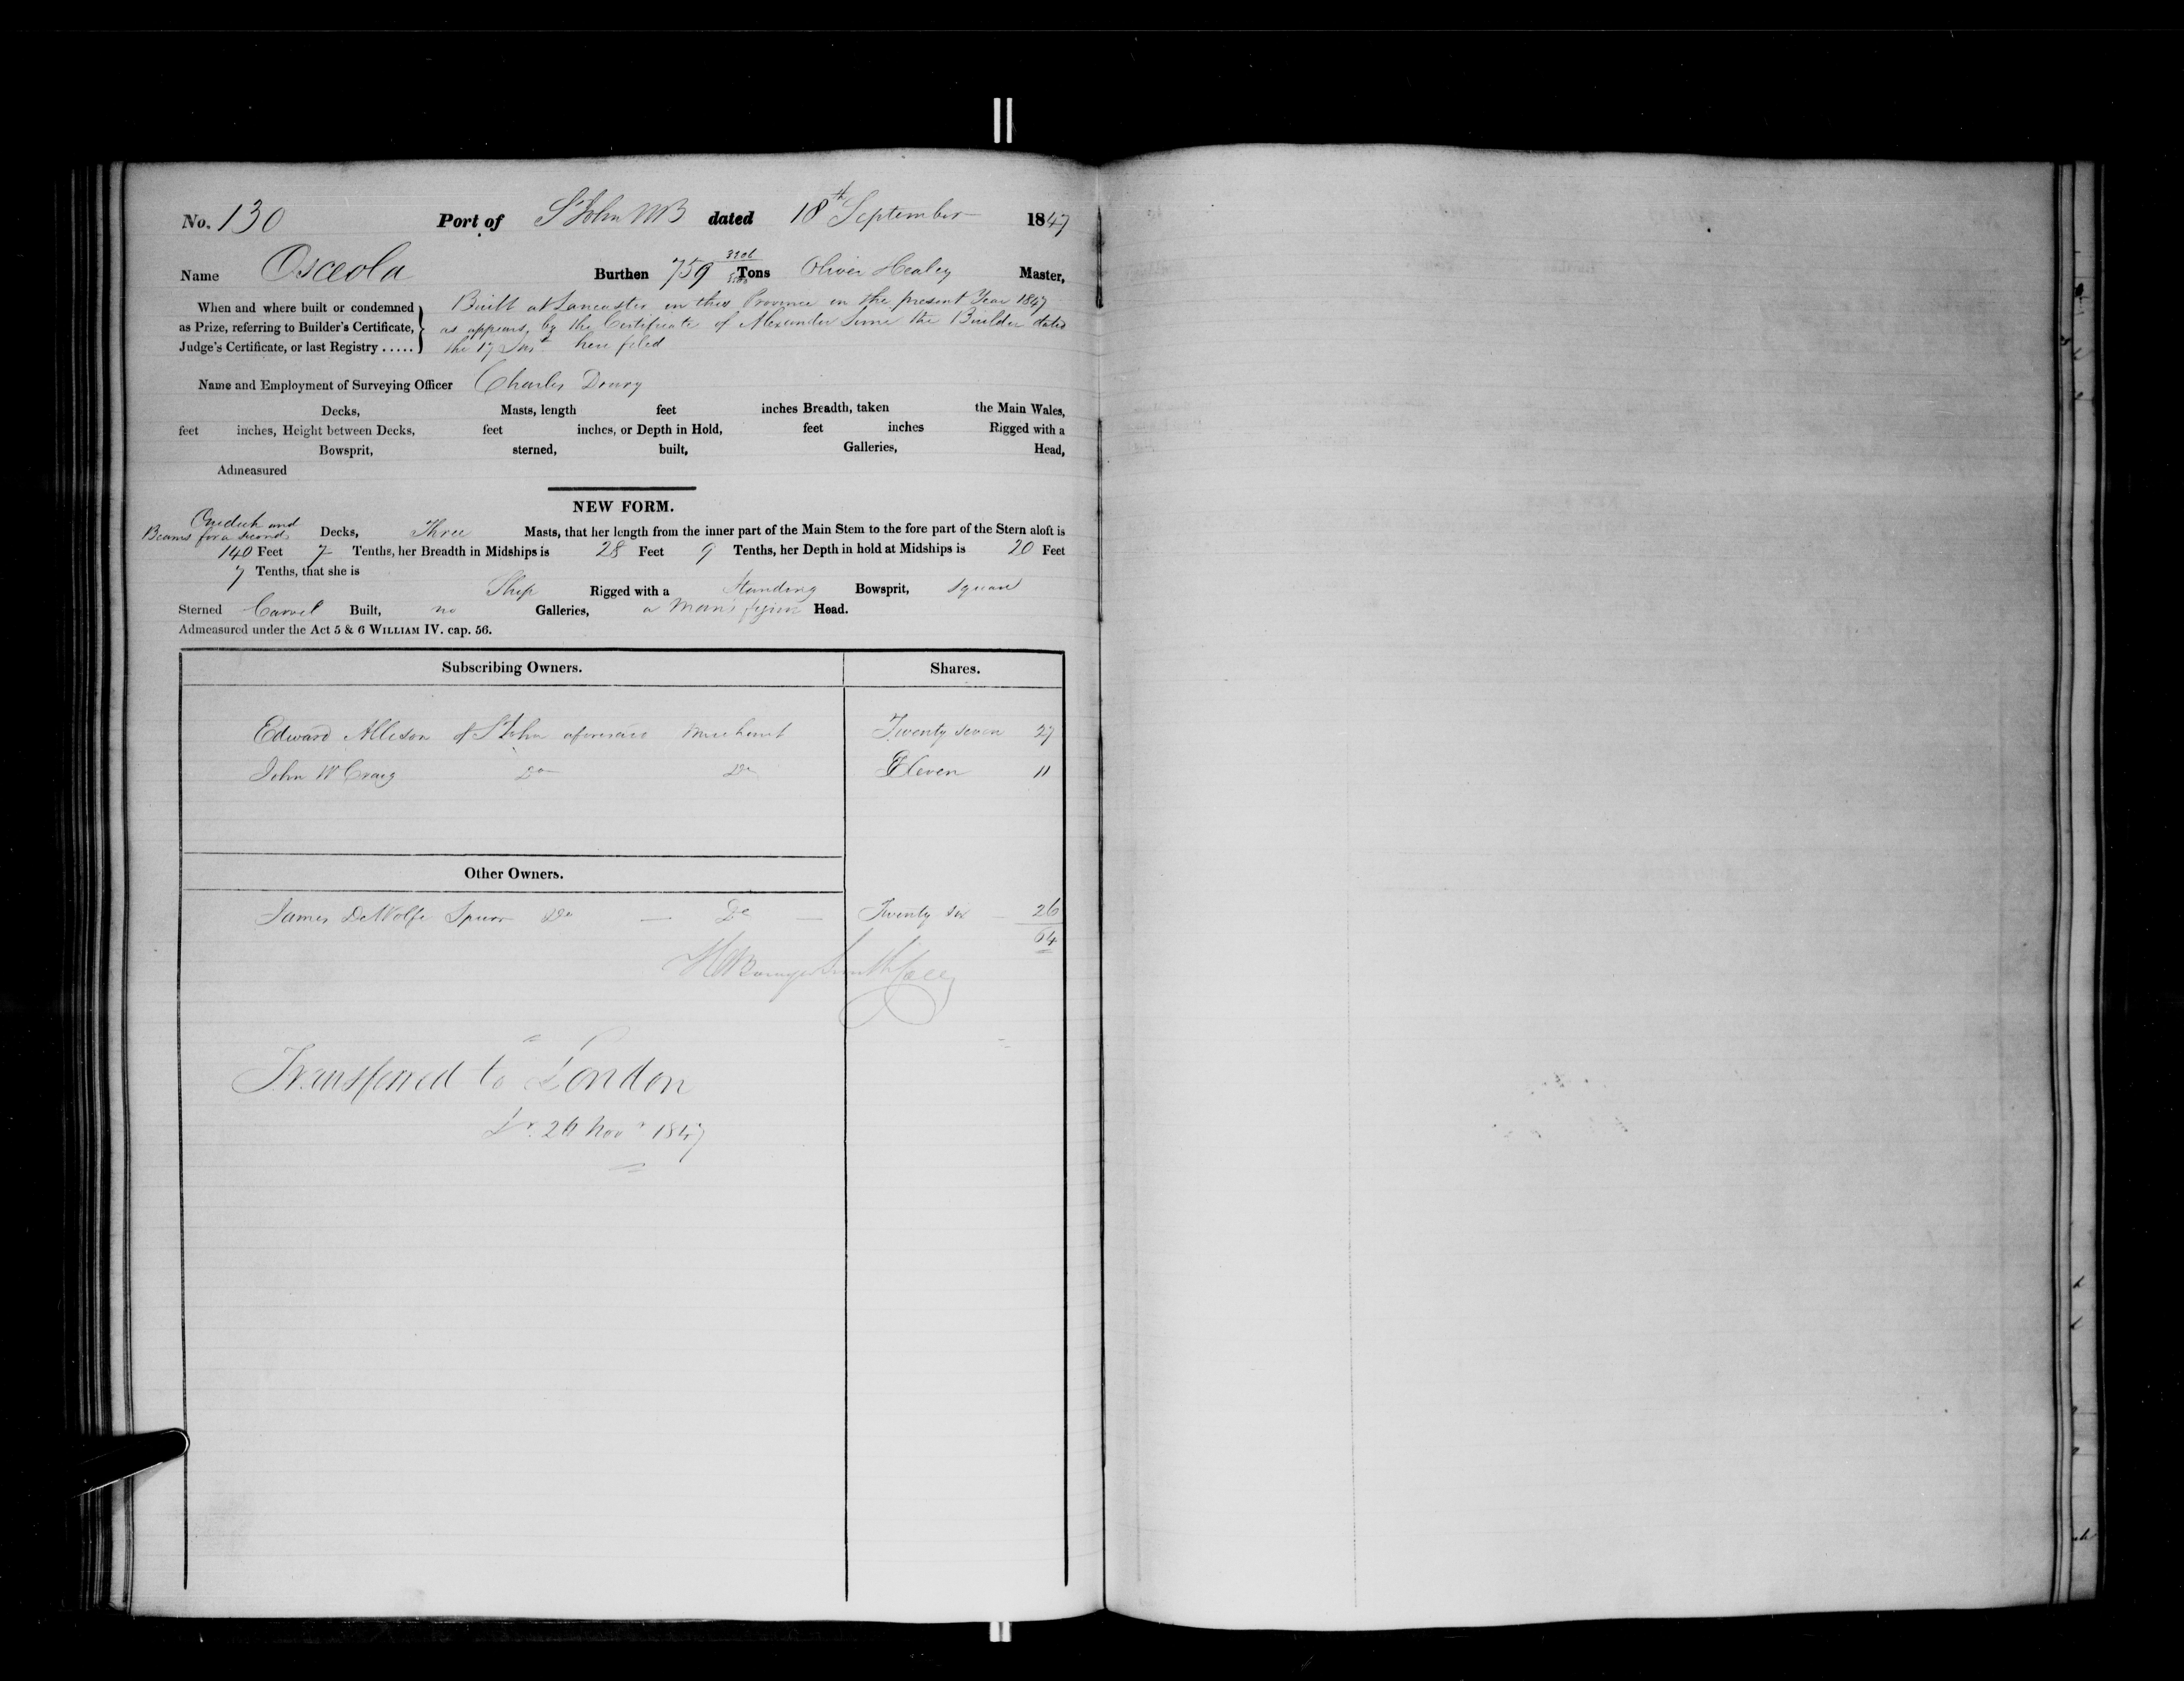 No. 130 Port of St John NB dated 18th September 1847
Name Osceola Burthen 759 Tons Oliver Healey Master,
When and where built or condemned Built at Lancaster in this Province in the present Year 1847
as Prize, referring to Builder's Certificate, as appears by the Certificate of Alexander Sime the Builder dated
Judge's Certificate, or last Registry ..... the 17 Inst here filed
Name and Employment of Surveying Officer Charles Drury
Decks, Masts, length feet inches Breadth, taken the Main Wales,
feet inches, Height between Decks, feet inches, or Depth in Hold, feet inches Rigged with a
Bowsprit, sterned, built, Galleries, Head,
Admeasured
NEW FORM.
One deck and
Beams for a second Decks, Three Masts, that her length from the inner part of the Main Stem to the fore part of the Stern aloft is
140 Feet 7 Tenths, her Breadth in Midships is 28 Feet 9 Tenths, her Depth in hold at Midships is 20 Feet
7 Tenths, that she is
Ship Rigged with a Standing Bowsprit, Square
Sterned Carvel Built, no Galleries, a Man's figure Head.
Admeasured under the Act 5 & 6 WILLIAM IV. cap. 56.
Subscribing Owners. Shares.
Edward Allison of St John aforesaid Merchant Twenty seven 27
John W Craig Do Do Eleven 11
Other Owners.
James DeWolfe Spurr Do — Do — Twenty six 26
64
Transferred to London
26 Nov r 1847